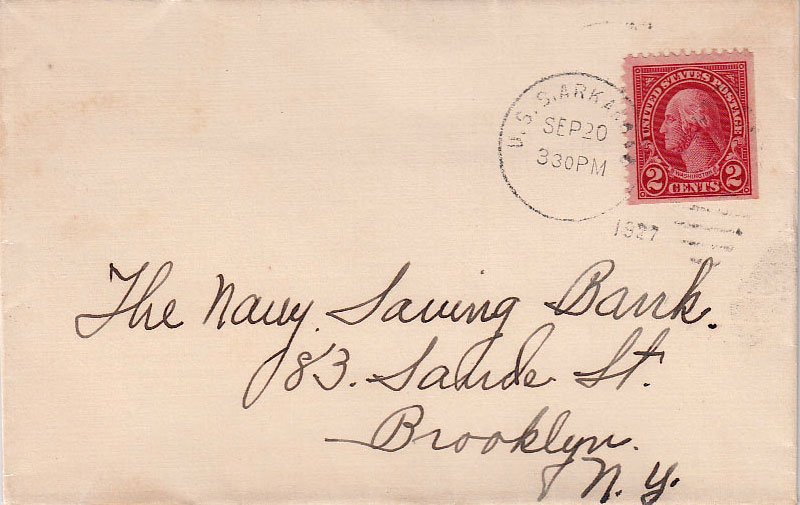 U.S.S. ARKANSAS
SEP 20
330PM
1927
UNITED STATES POSTAGE
WASHINGTON
2 CENTS 2
The Navy Saving Bank.
183. Sande St.
Brooklyn.
N. Y.